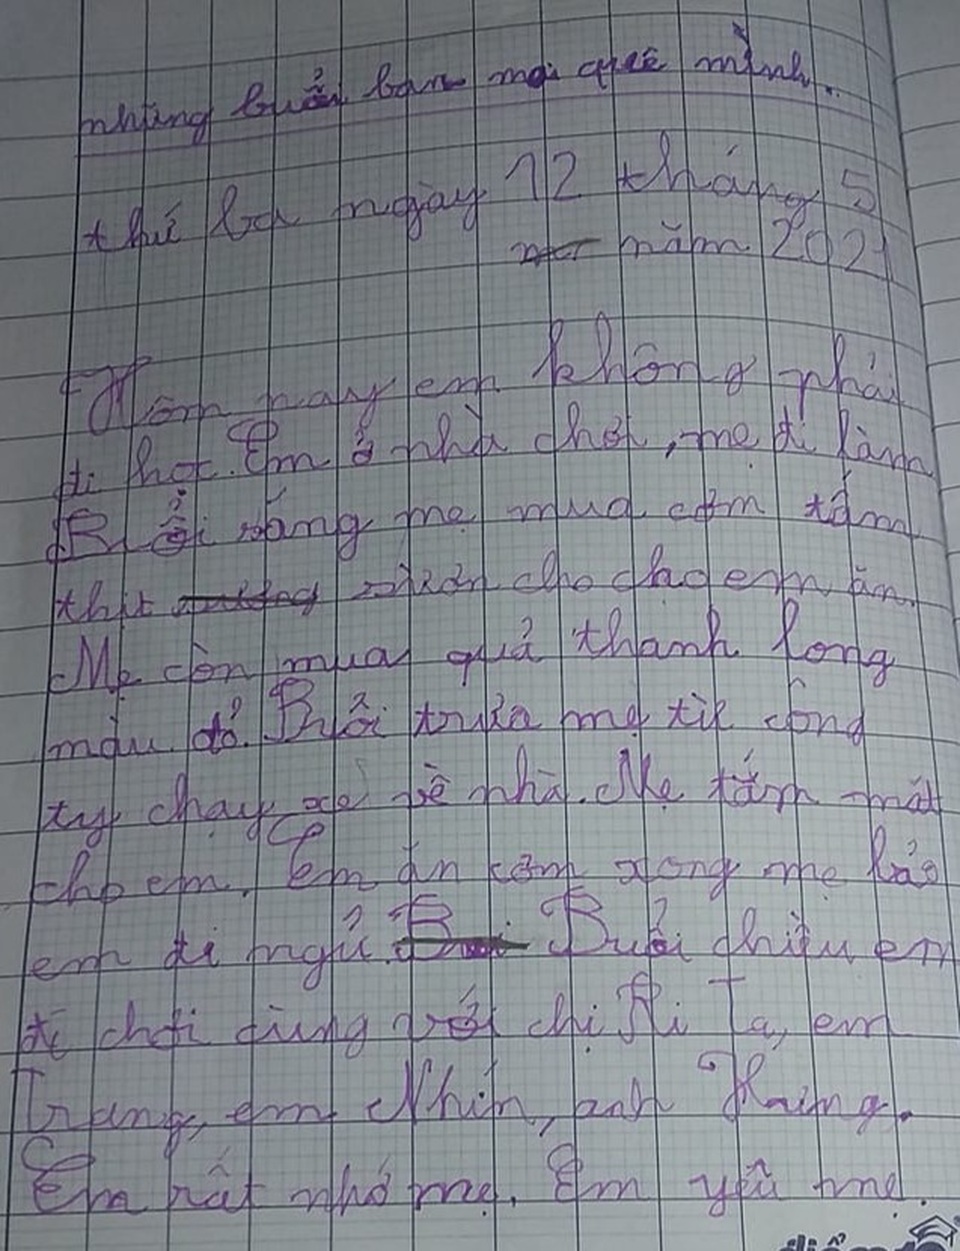 những buổi ban mai quê mình.
thứ ba ngày 12 tháng 5
năm 2021
Hôm nay em không phải
đi học. Em ở nhà chơi, mẹ đi làm
Buổi sáng mẹ mua cơm tấm
thịt cho cho em ăn.
Mẹ còn mua quả thanh long
màu đỏ. Buổi trưa mẹ từ công
ty chạy xe về nhà. Mẹ tắm mát
cho em. Em ăn cơm xong mẹ bảo
em đi ngủ. Buổi chiều em
đi chơi cùng với chị Ri Ta, em
Trang, em Nhím, anh Hưng.
Em rất nhớ mẹ. Em yêu mẹ.